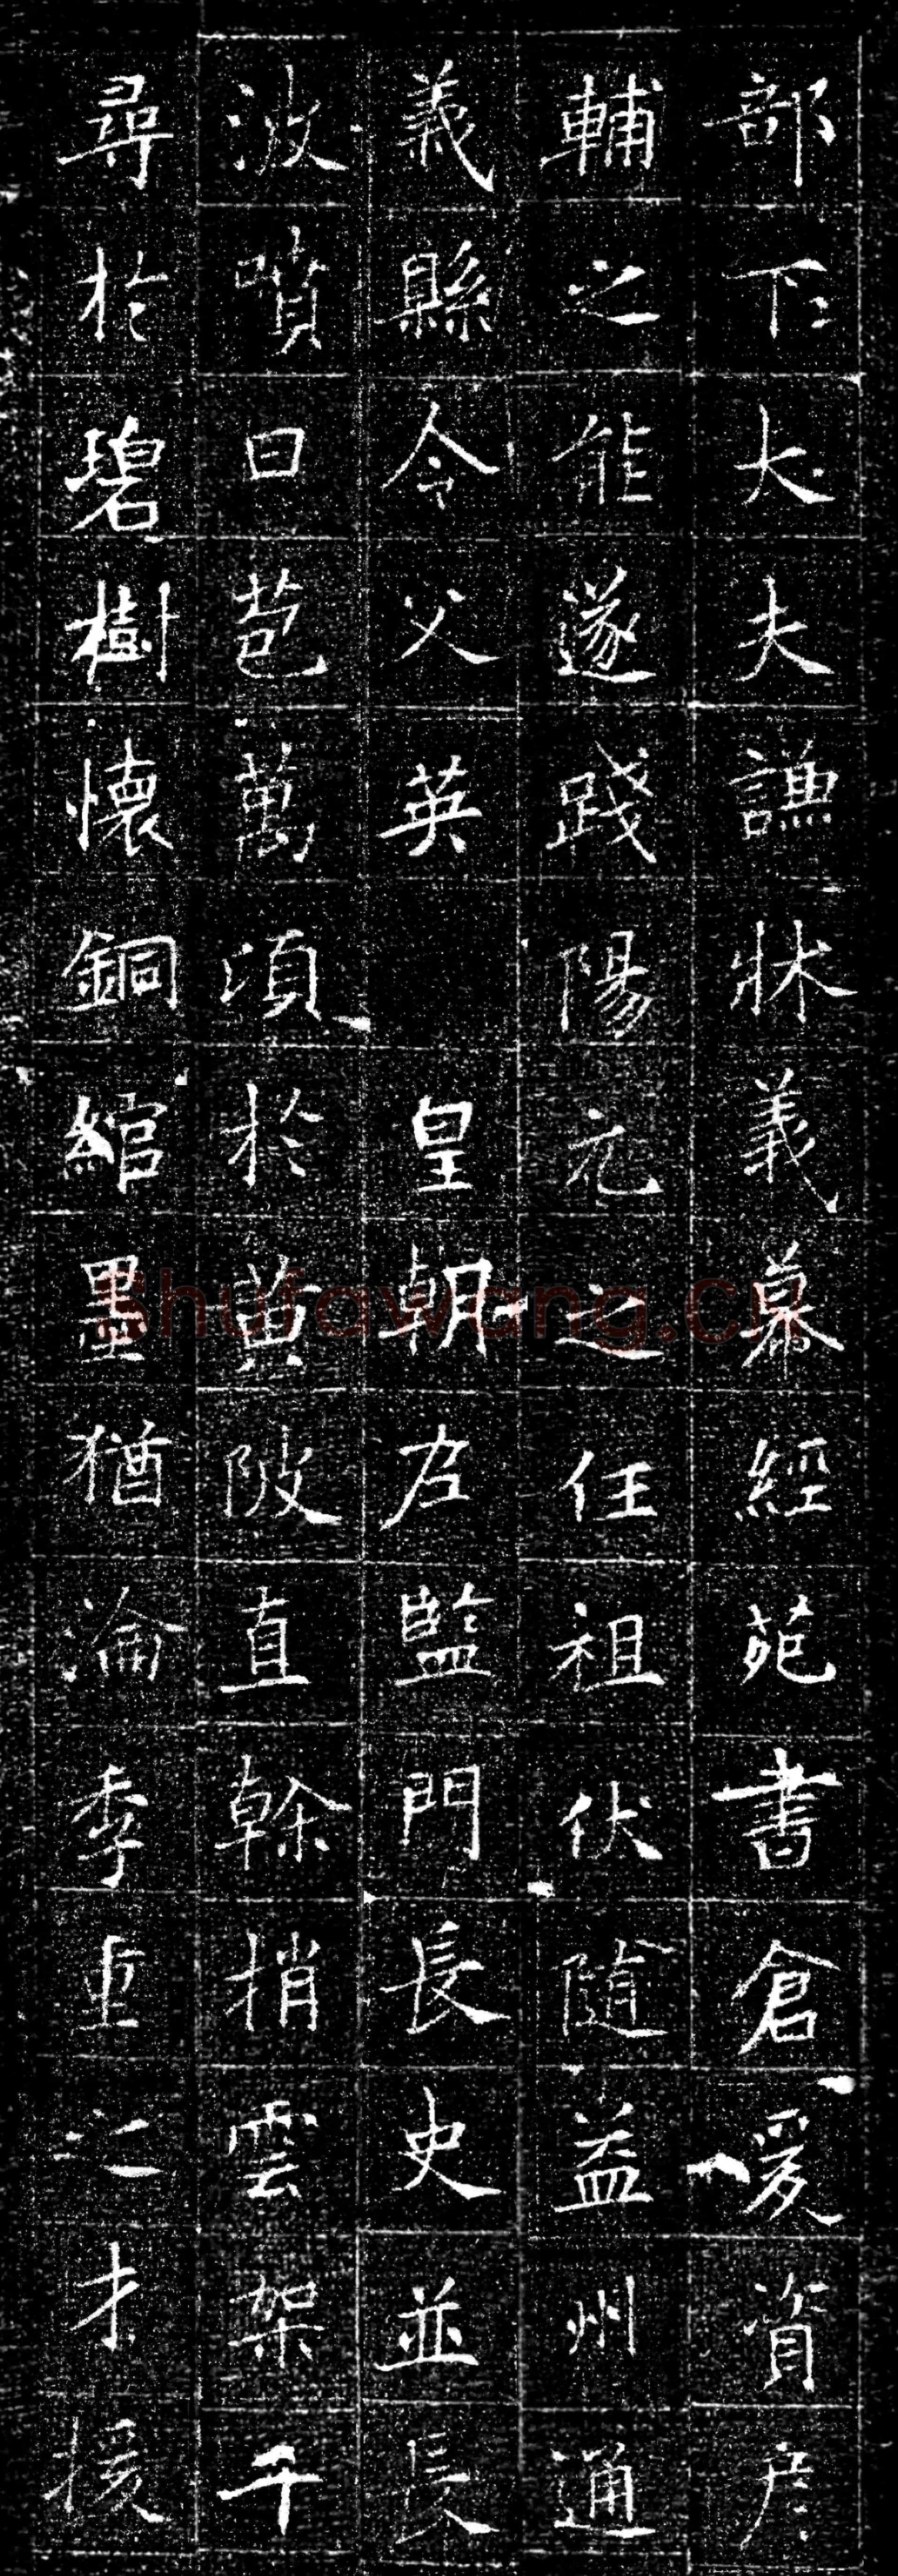 部下大夫謙狀義幕經苑書倉爰資
輔之能遂踐陽元之任祖伏隨益州通
義縣令父英皇朝左監門長史並長
波噴日苞萬頃於黄陂直幹捎雲架千
尋於碧樹懷銅綰墨猶淪季重之才援
Shufawang.cn